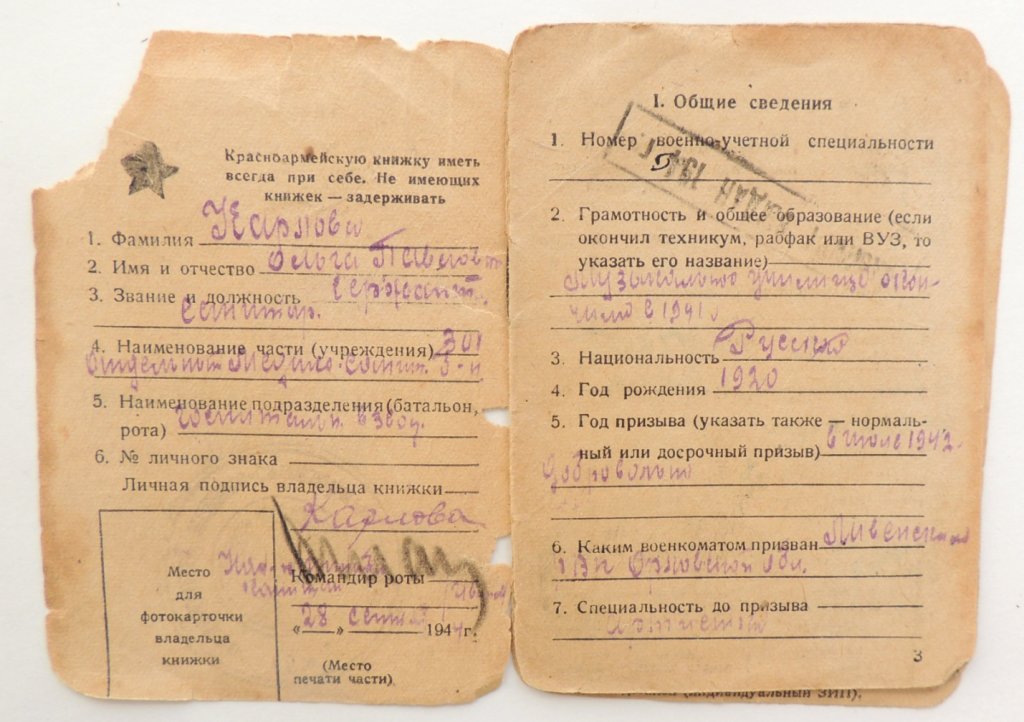 Красноармейскую книжку иметь
всегда при себе. Не имеющих
книжек — задерживать
1. Фамилия Карлова
2. Имя и отчество Ольга Павловн
3. Звание и должность Сержант.
Санитар.
4. Наименование части (учреждения) 301
отдельный Медико-санит. б-н
5. Наименование подразделения (батальон,
рота) госпитальн. взвод.
6. № личного знака
Личная подпись владельца книжки
Карлова
Командир роты
28 сентяб 1944 г.
Место
для
фотокарточки
владельца
книжки
(Место
печати части)
I. Общие сведения
1. Номер военно-учетной специальности
2. Грамотность и общее образование (если
окончил техникум, рабфак или ВУЗ, то
указать его название)
Музыкальное училище окон-
чила в 1941
3. Национальность Русская
4. Год рождения 1920
5. Год призыва (указать также — нормаль-
ный или досрочный призыв) в июле 1942
добровольно
6. Каким военкоматом призван Ливенским
РВК Орловской обл.
7. Специальность до призыва
Артистка
3
(индивидуальный ЗИП).